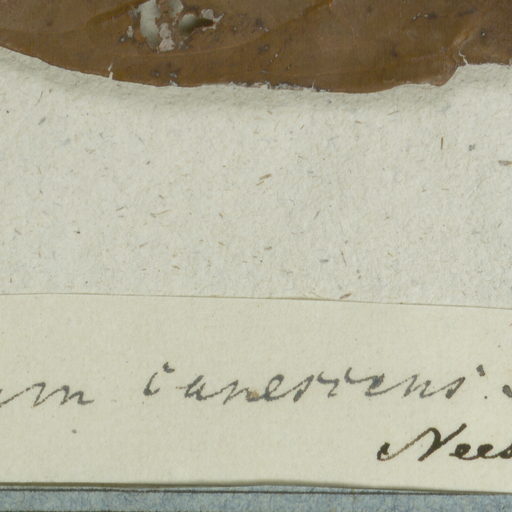 um canescens.
Nees